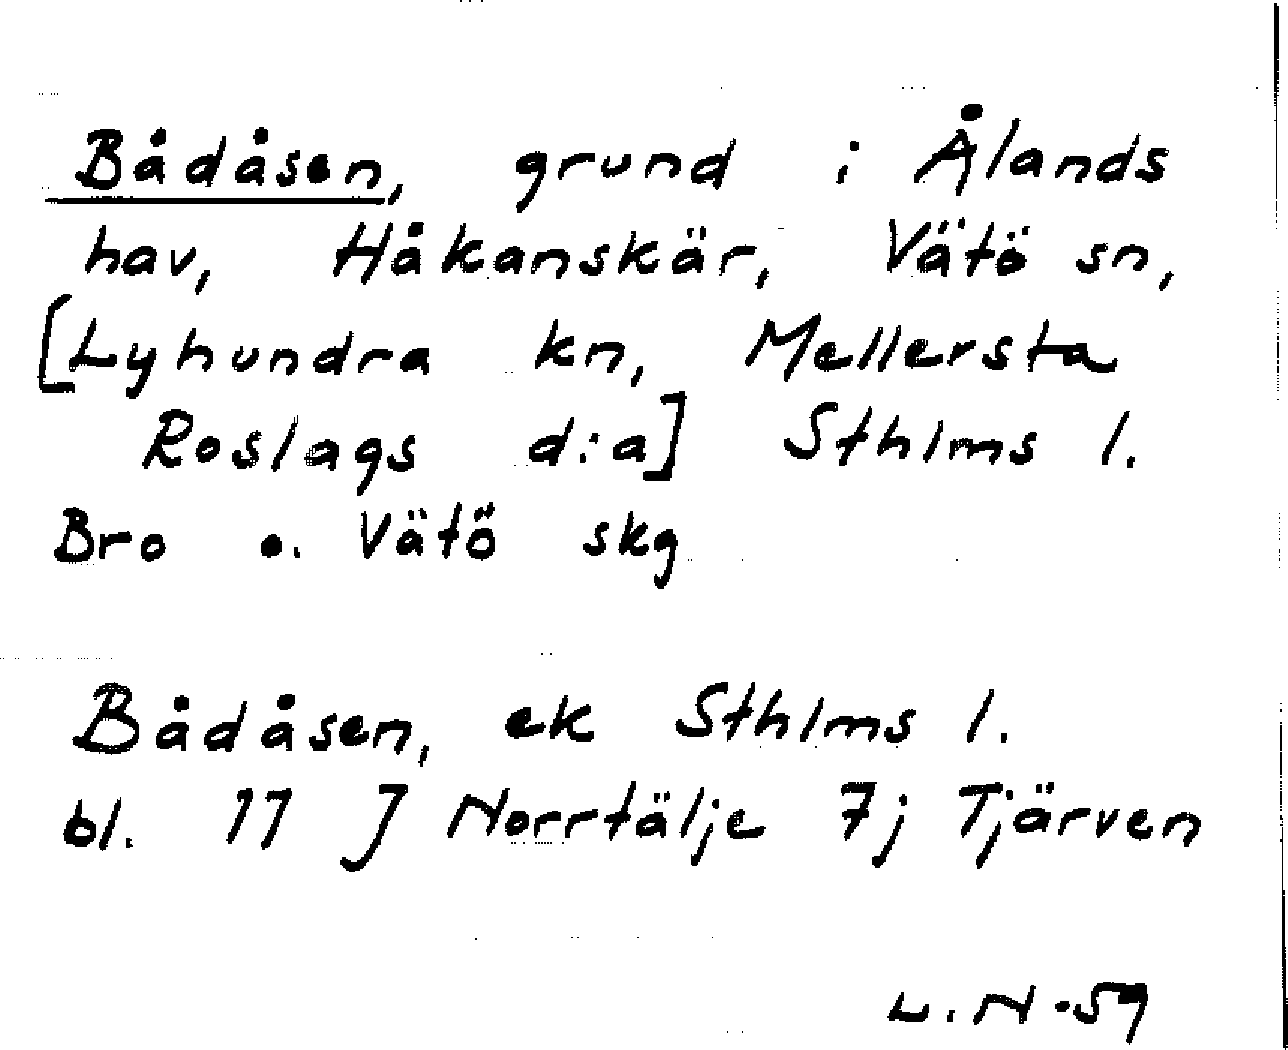 Bådåsen, grund i Ålands
hav, Håkanskär, Vätö sn,
[Lyhundra kn, Mellersta
Roslags d:a] Sthlms l.
Bro o. Vätö skg
Bådåsen, ek Sthlms l.
bl. 11 J Norrtälje 7j Tjärven
L. N -59